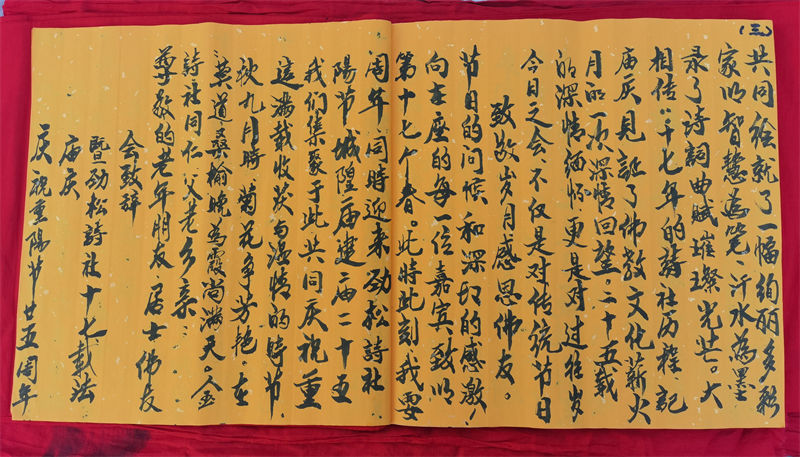 庆祝重陽节廿五周年
庙庆
暨劲松詩社十七載法
会致辞
尊敬的老年朋友 居士佛友
詩社同仁 父老乡亲:
莫道桑榆晚 為霞尚满天。金
秋九月時 菊花争芳艳。在
這满載收获与温情的時节,
我们集聚于此共同庆祝重
陽节 城隍庙建庙二十五
周年 同時迎来劲松詩社
第十七个春。此時此刻 我要
向在座的每一位嘉宾致以
节日的问候和深切的感激!
致敬岁月感恩佛友。
今日之会、不仅是对传统节日
的深情缅怀 更是对过往岁
月的一次深情回望。二十五載
庙庆見証了佛教文化薪火
相传。十七年的詩社历程、記
录了诗詞曲賦璀璨光芒。大
家以智慧為笔 汗水為墨
共同绘就了一幅绚丽多彩
(三)